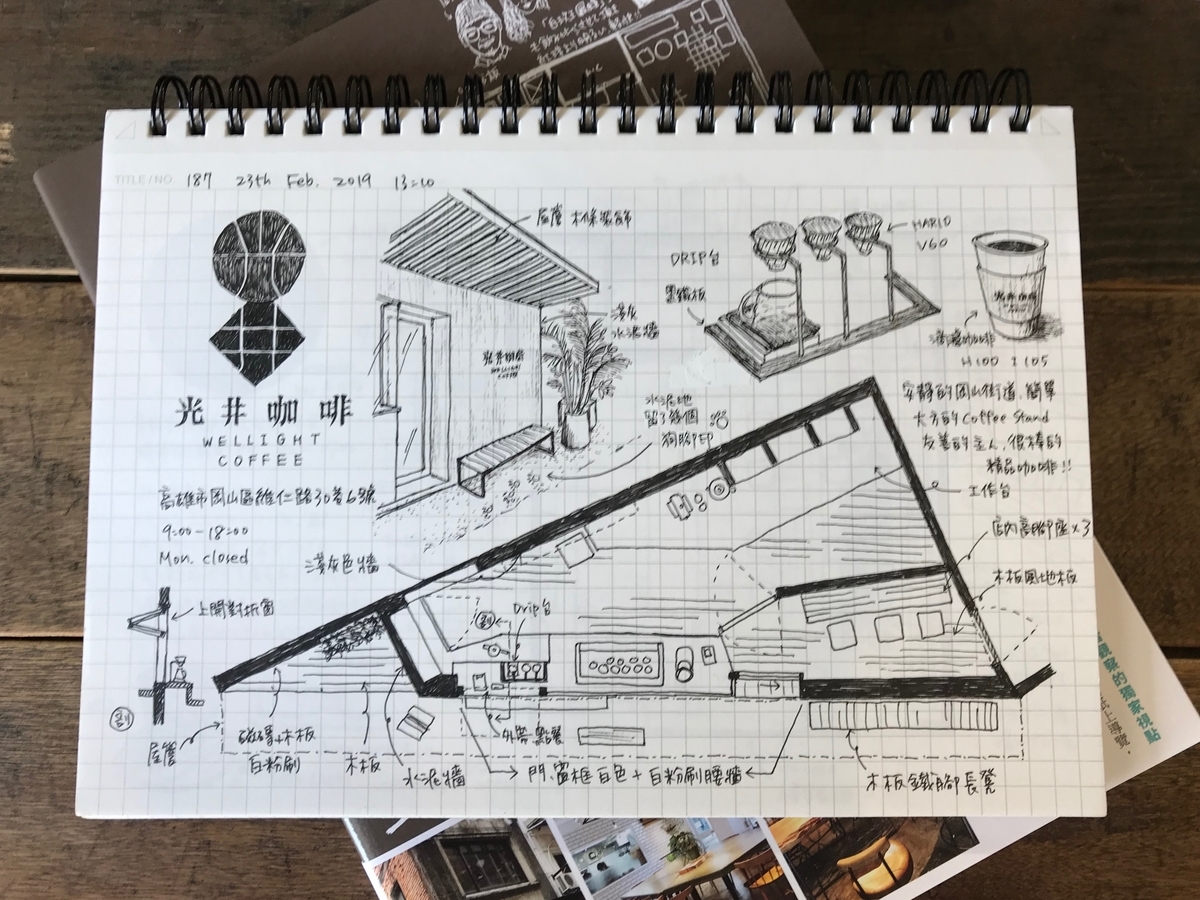 TITLE/NO. 187 23th Feb. 2019 13:10
屋簷 木條裝飾
淺灰
水泥牆
光井咖啡
WELLIGHT
COFFEE
DRIP台
黑鐵板
HARIO
V60
光井咖啡
H 100 I 105
光井咖啡
WELLIGHT
COFFEE
高雄市岡山區維仁路30巷6號
9:00-18:00
Mon. closed
水泥地
留了幾個
狗腳印
安靜的岡山街道,簡單
大方的Coffee Stand
友善的主人,很棒的
精品咖啡!!
工作台
店內高腳座x3
木板風地板
淺灰色牆
上開對折窗
剖
Drip台
剖
屋簷
磁磚+木板
白粉刷
木板
水泥牆
外帶點餐
門、窗框白色+白粉刷腰牆
木板鐵腳長凳
觀察的獨家視點
紙上導覽,